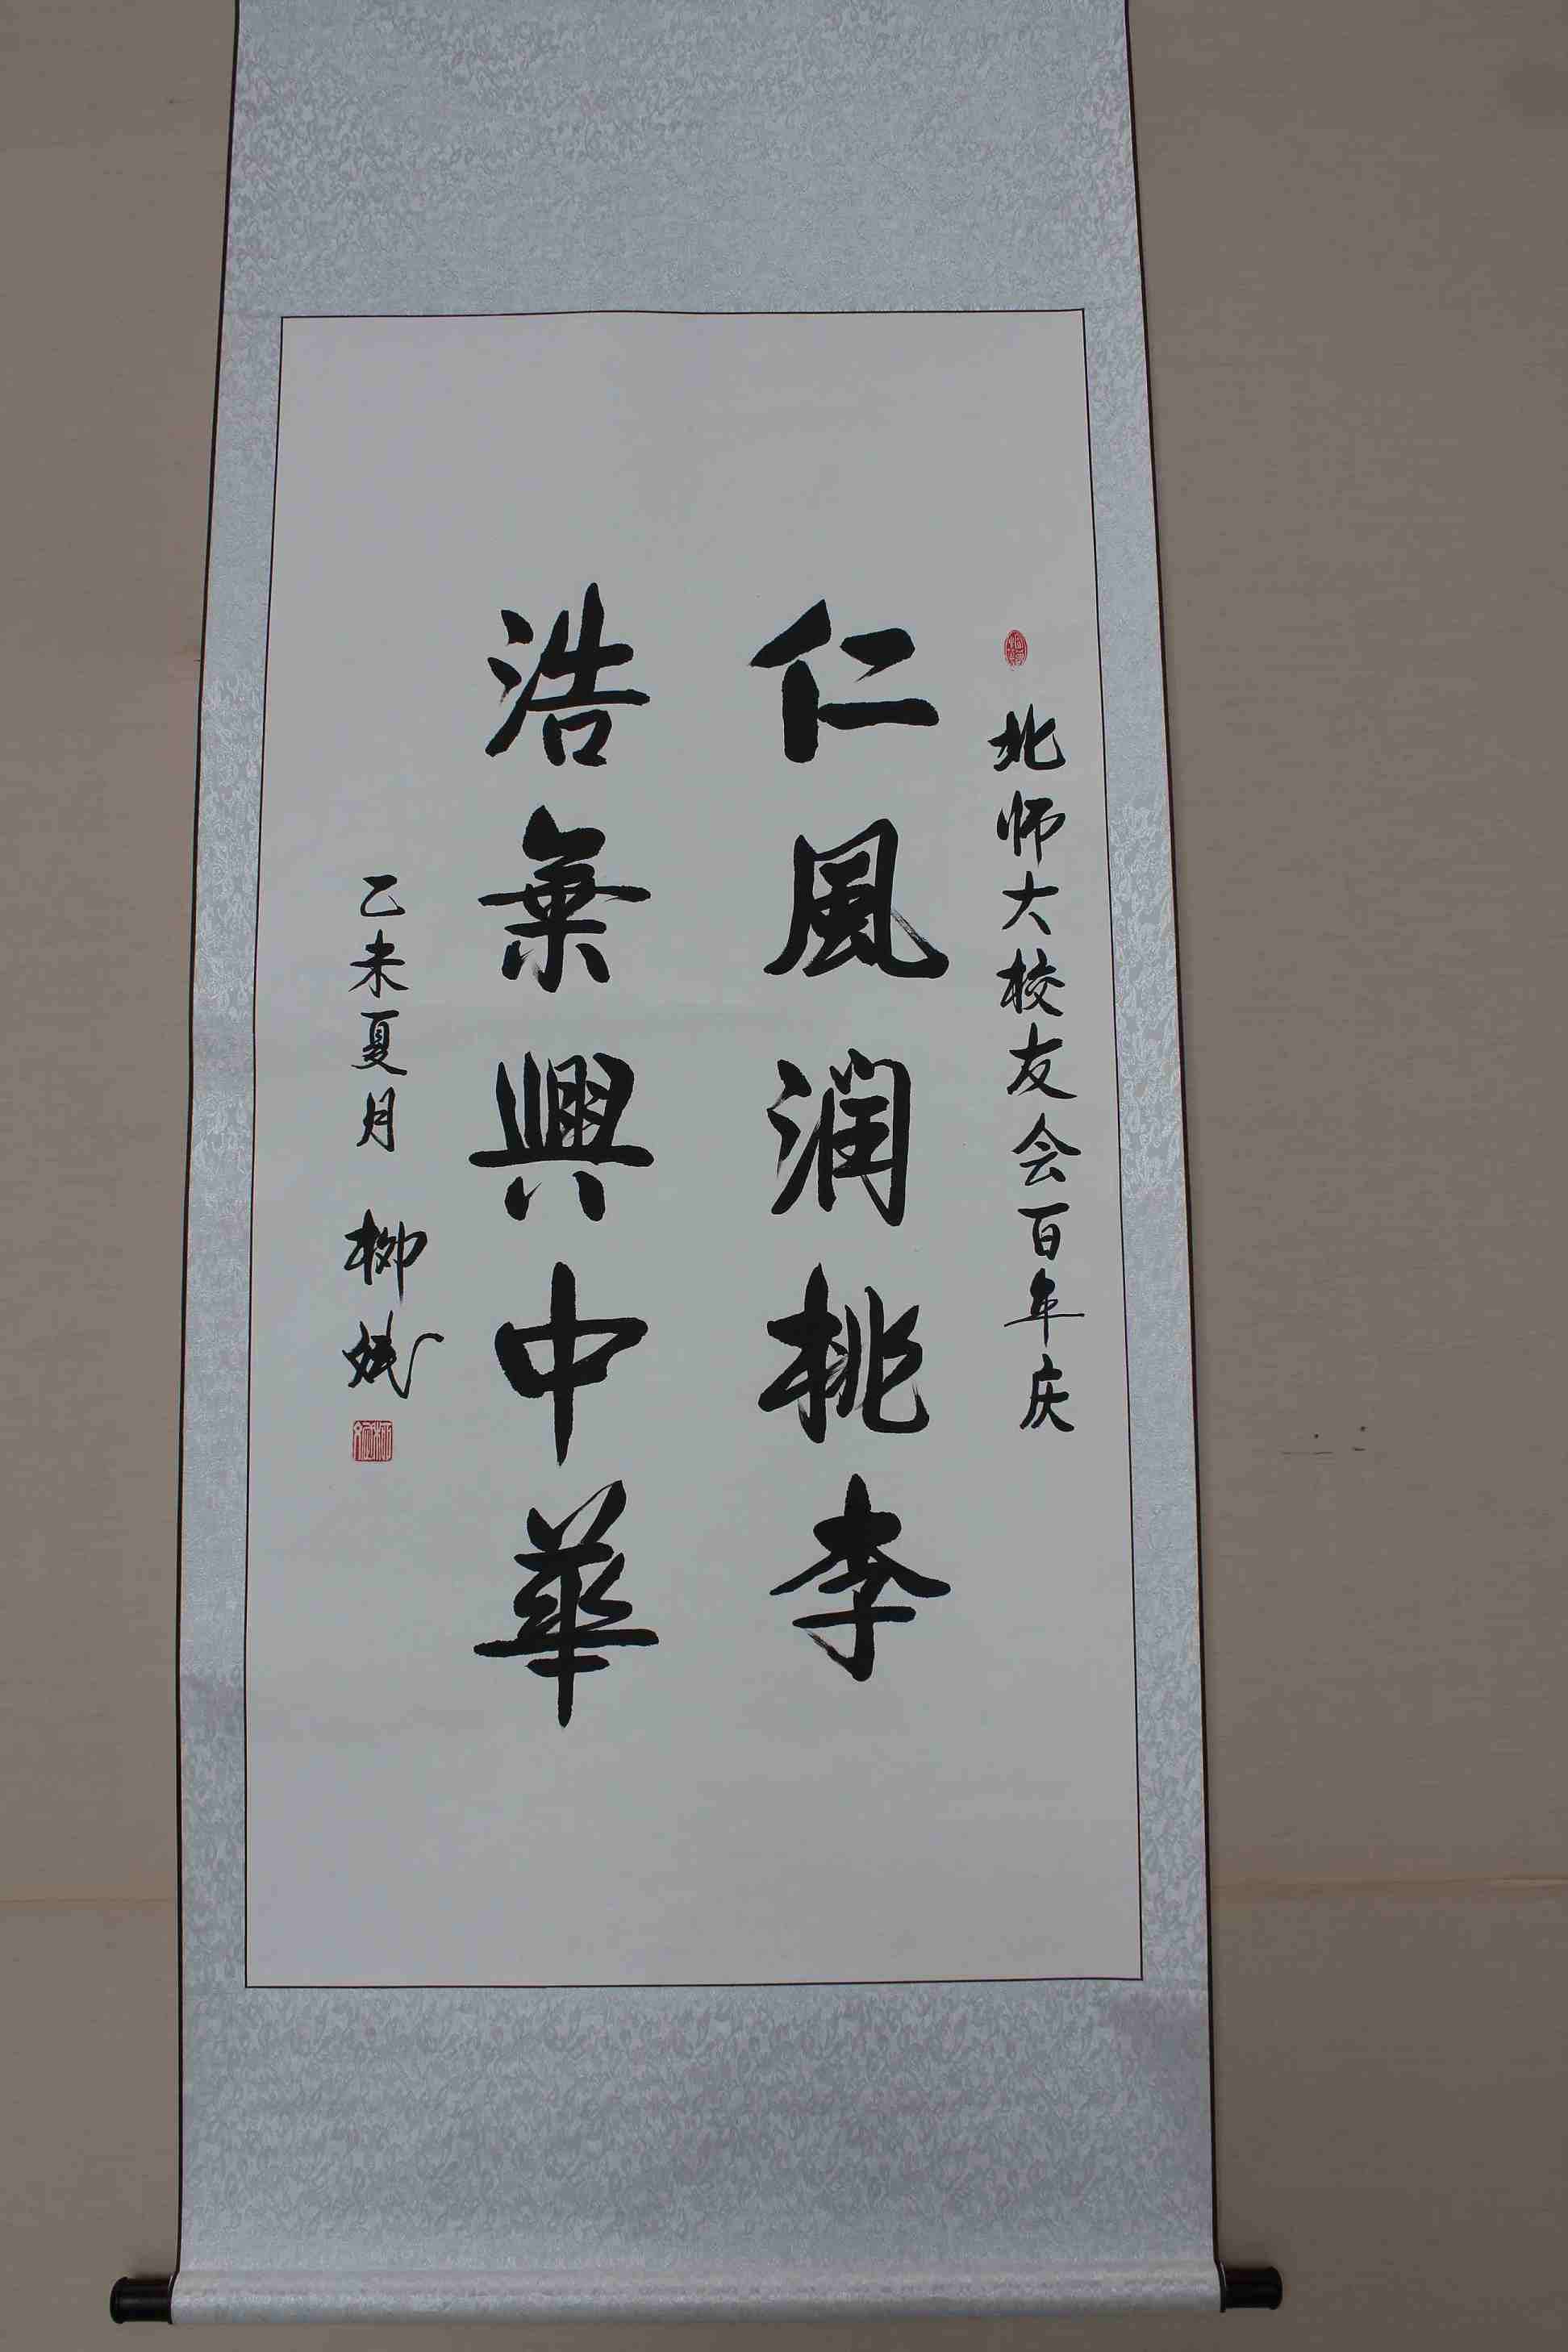 北师大校友会百年庆
仁風润桃李
浩氣興中華
乙未夏月 柳斌